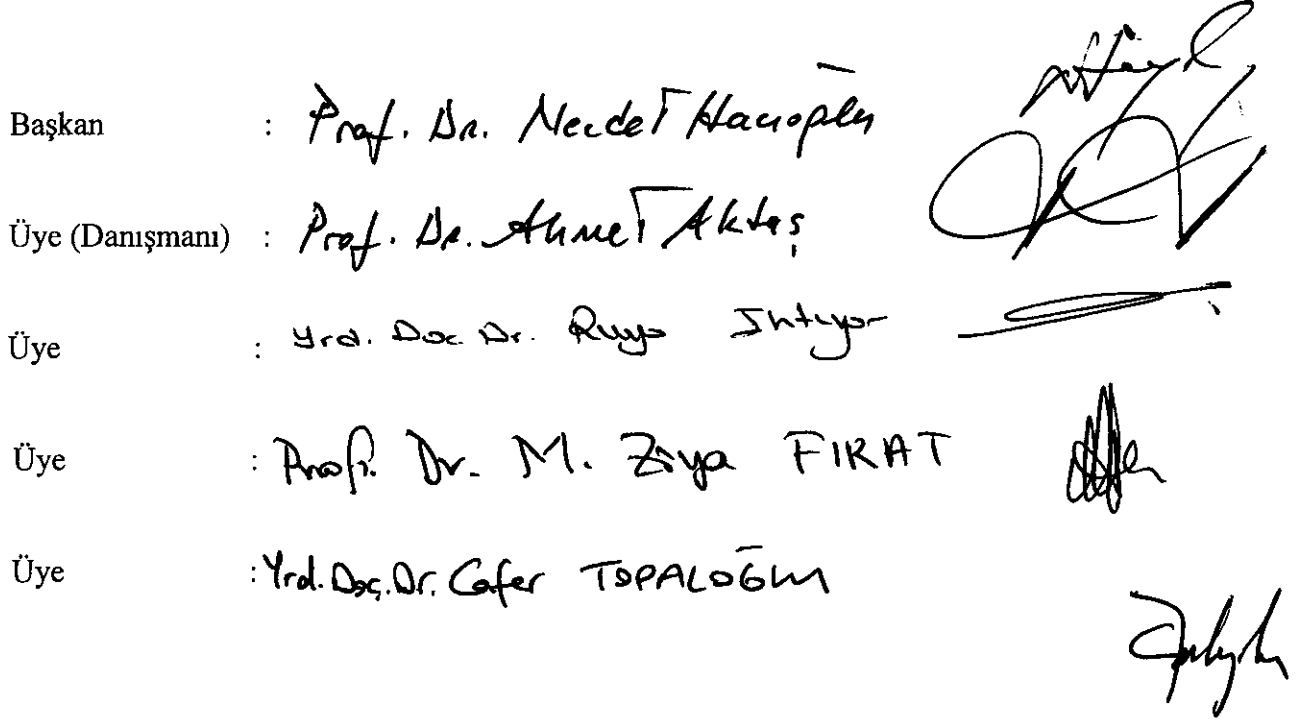 Başkan : Prof. Dr. Necdet Hacıoğlu
Üye (Danışmanı) : Prof. Dr. Ahmet Aktaş
Üye : Yrd. Doç. Dr. Ruya Ihtiyar
Üye : Prof. Dr. M. Ziya FIRAT
Üye : Yrd. Doç. Dr. Cafer TOPALOĞLU